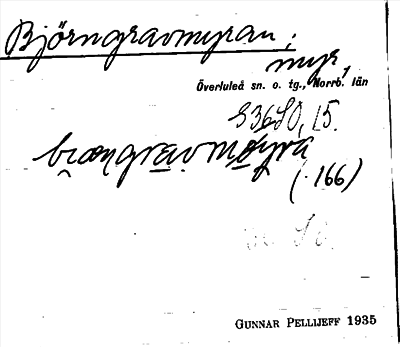 Björngravmyran;
myr,
Överluleå sn. o. tg., Norrb. län
S36SO, L5.
(·166)
GUNNAR PELLIJEFF 1935